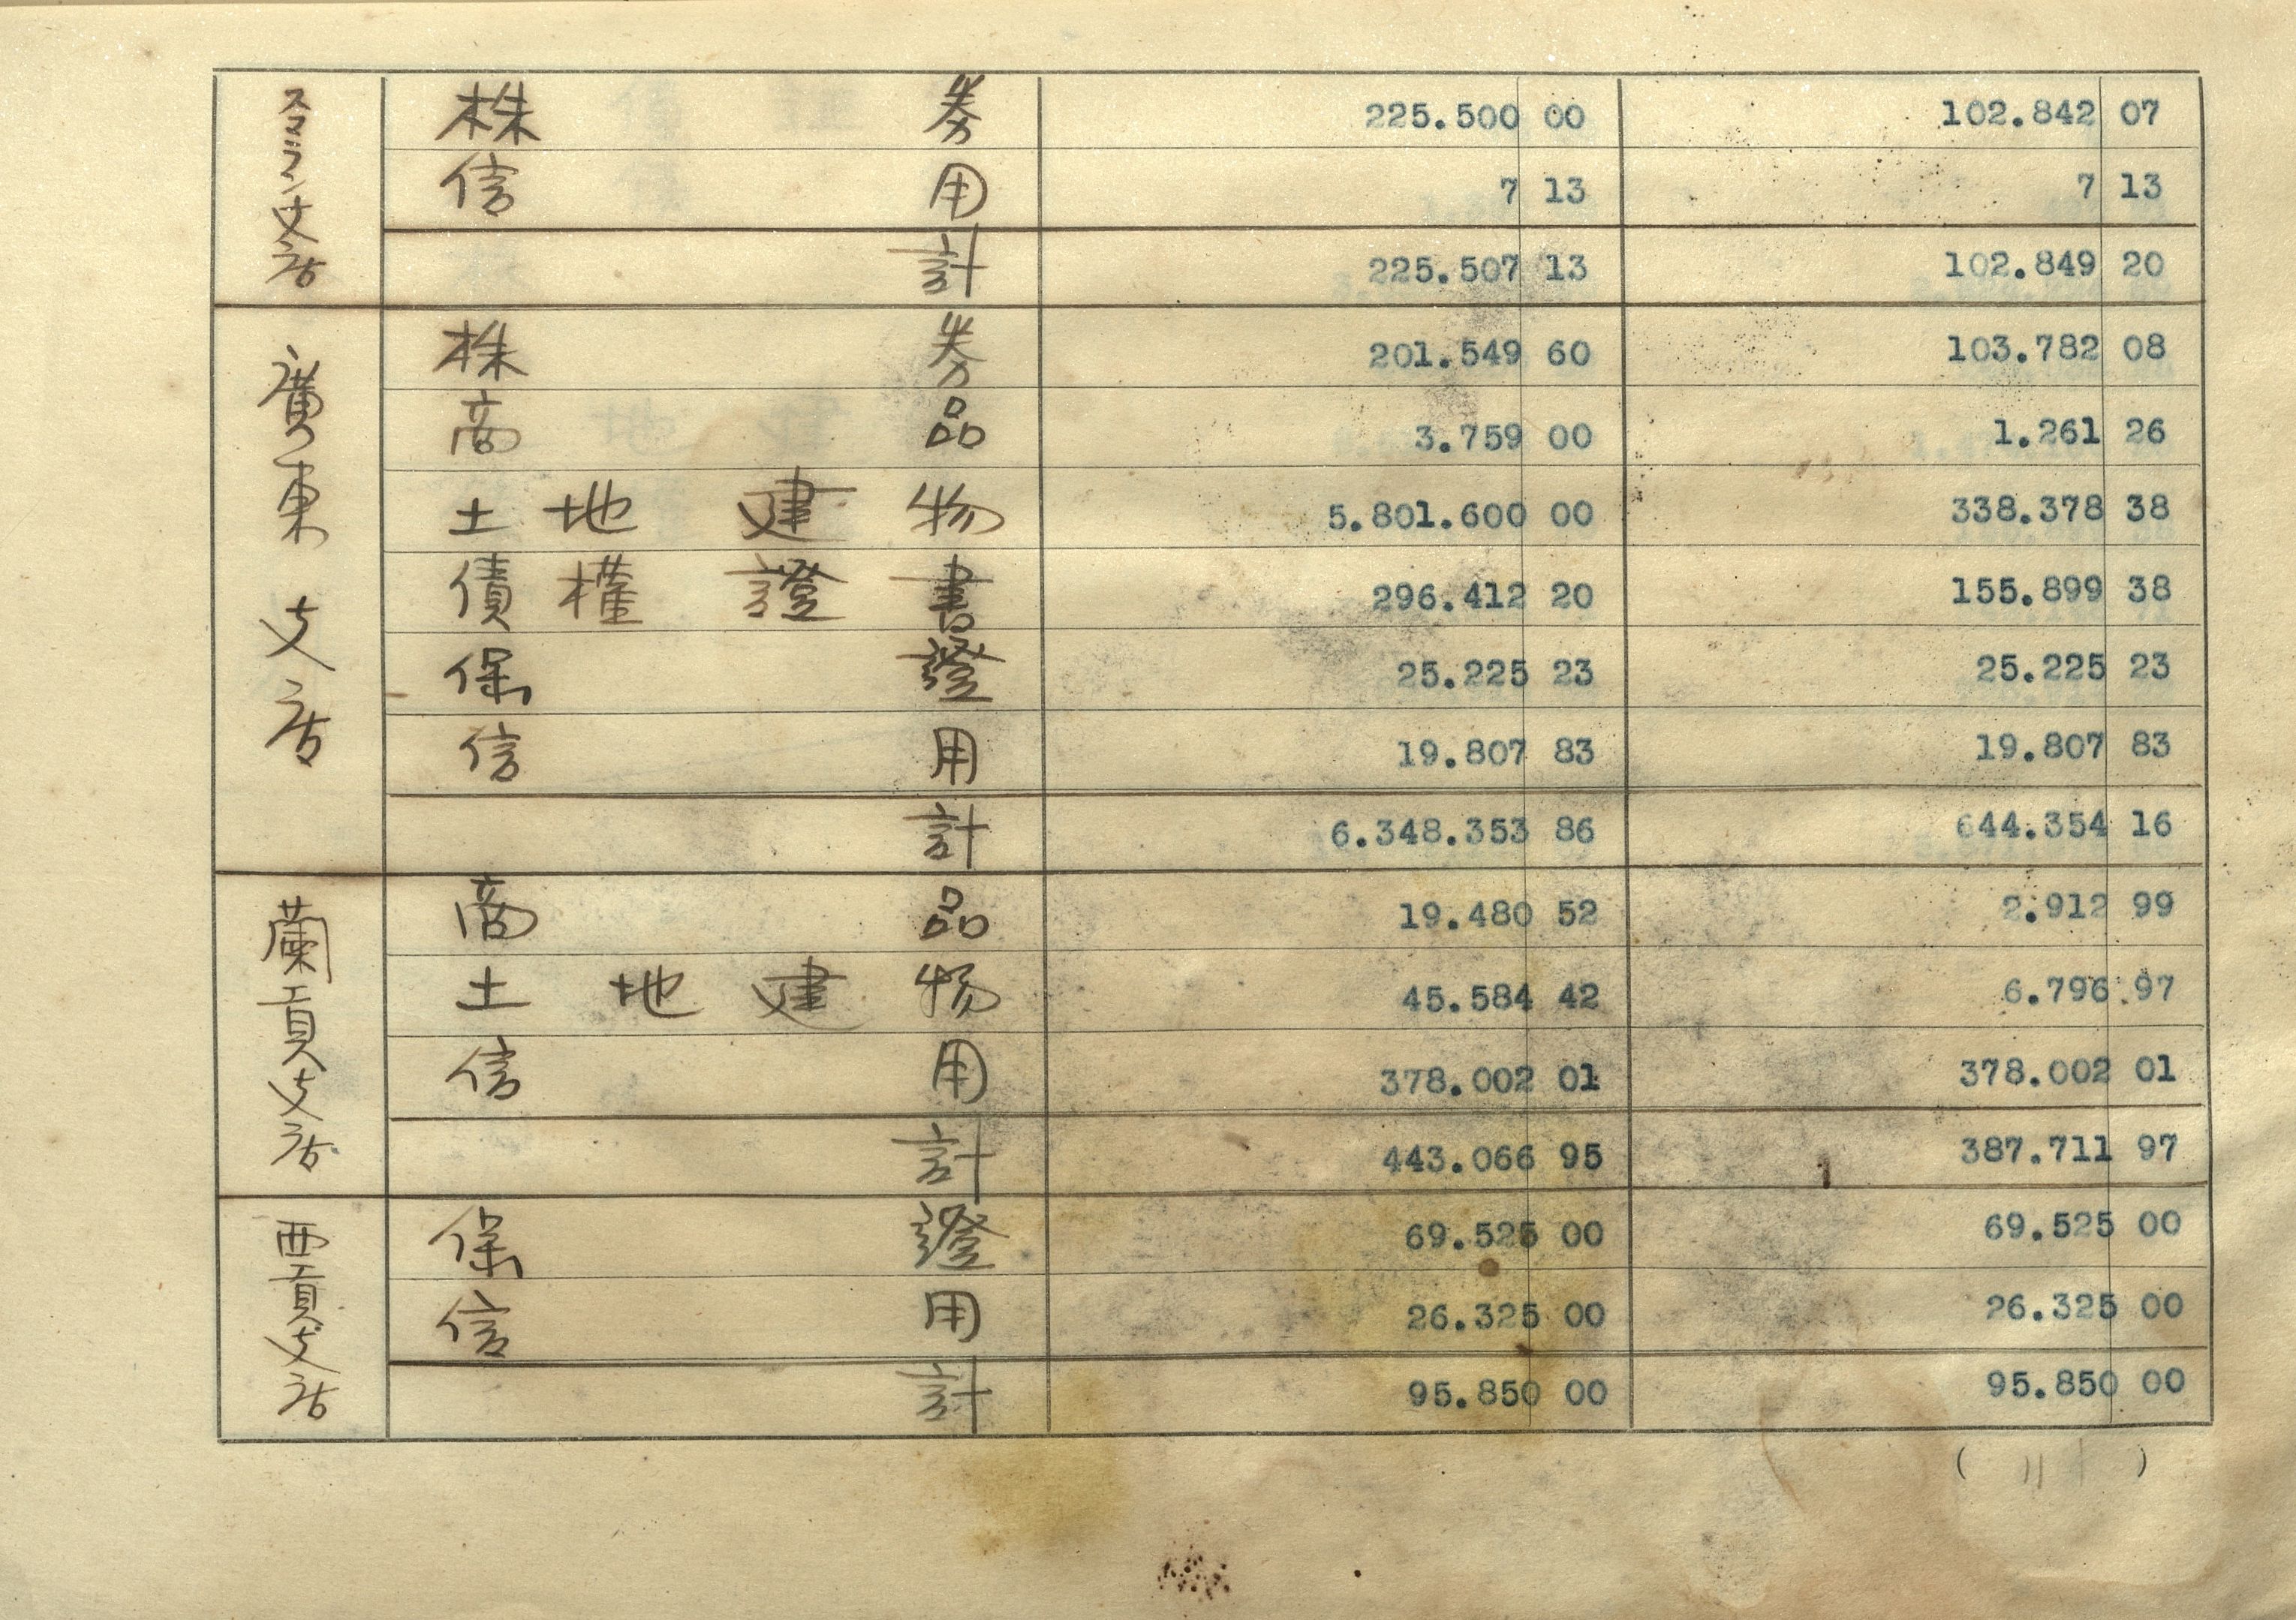 スマラン支店
株券 225.500 00 102.842 07
信用 7 13 7 13
計 225.507 13 102.849 20
廣東支店
株券 201.549 60 103.782 08
商品 3.759 00 1.261 26
土地建物 5.801.600 00 338.378 38
債權證書 296.412 20 155.899 38
保證 25.225 23 25.225 23
信用 19.807 83 19.807 83
計 6.348.353 86 644.354 16
蘭貢支店
商品 19.480 52 2.912 99
土地建物 45.584 42 6.796 97
信用 378.002 01 378.002 01
計 443.066 95 387.711 97
西貢支店
保證 69.525 00 69.525 00
信用 26.325 00 26.325 00
計 95.850 00 95.850 00